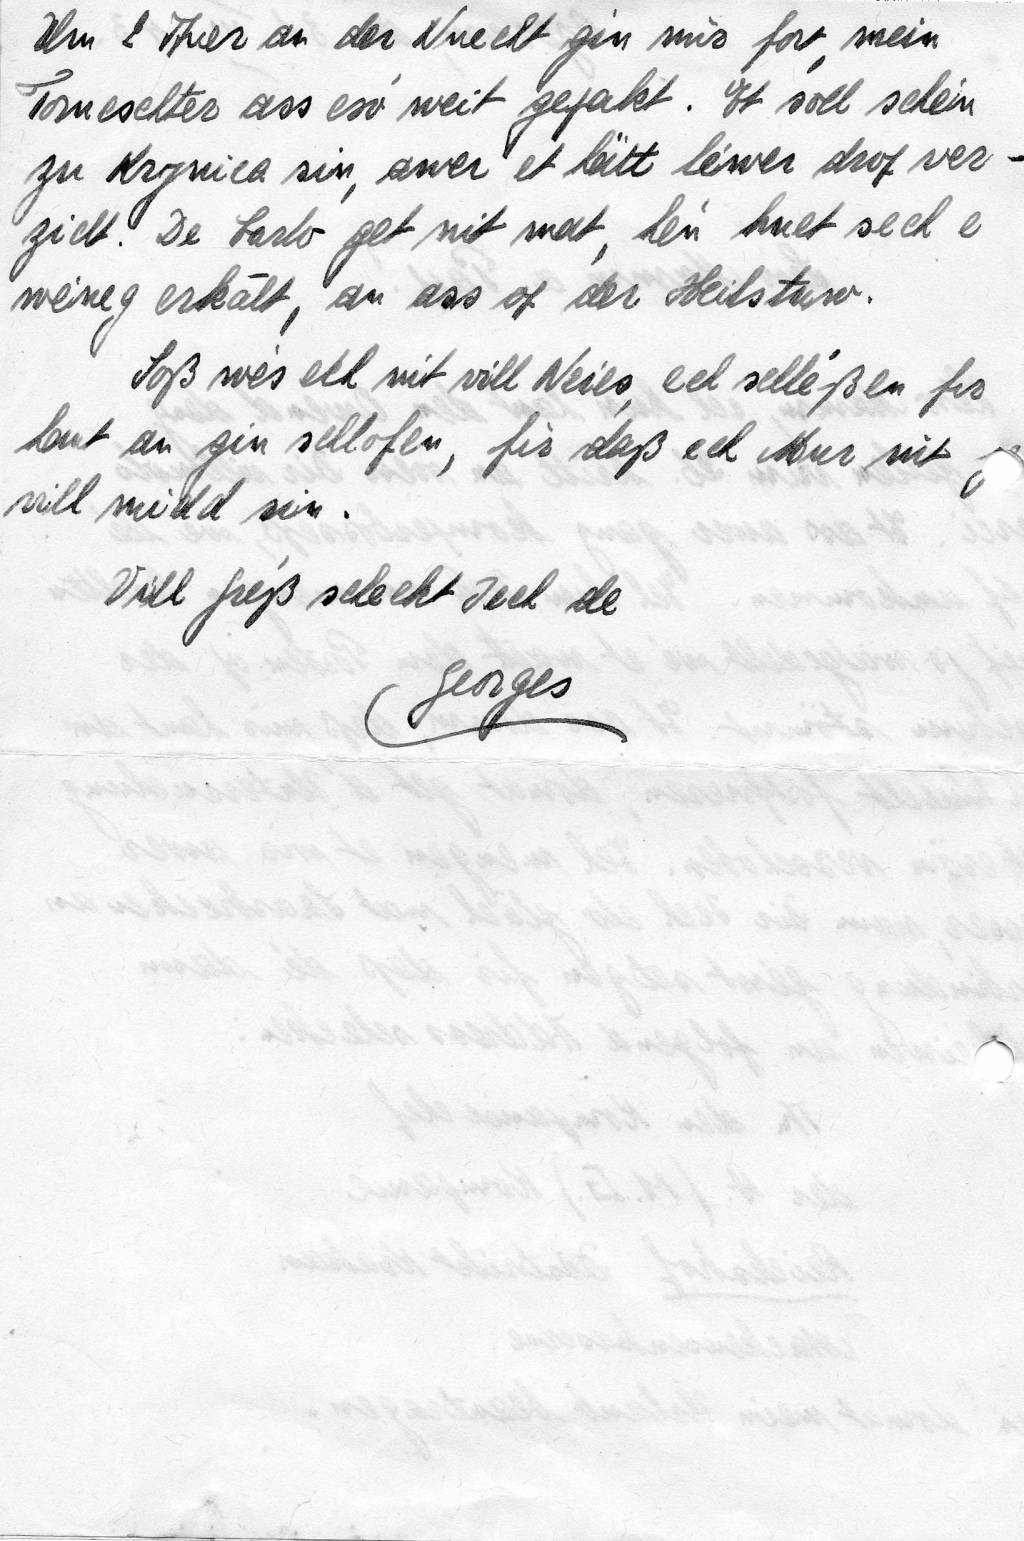 Um 2 Auer an der Nuecht gin mir fort, mein
Tornëschter ass esó weit gepakt. Et soll schéin
zu Krynica sin, awer et hätt léiwer drof ver-
zicht. De Carlo get nit mat, hén huet sech e
wéineg erkält, an ass of der Heilstuw.
Soß wés ech nit vill Neies, ech schléßen fir
haut an gin schlofen, fir daß ech Muer nit ze
vill midd sin.
Vill Gréß scheckt Iech de
Georges